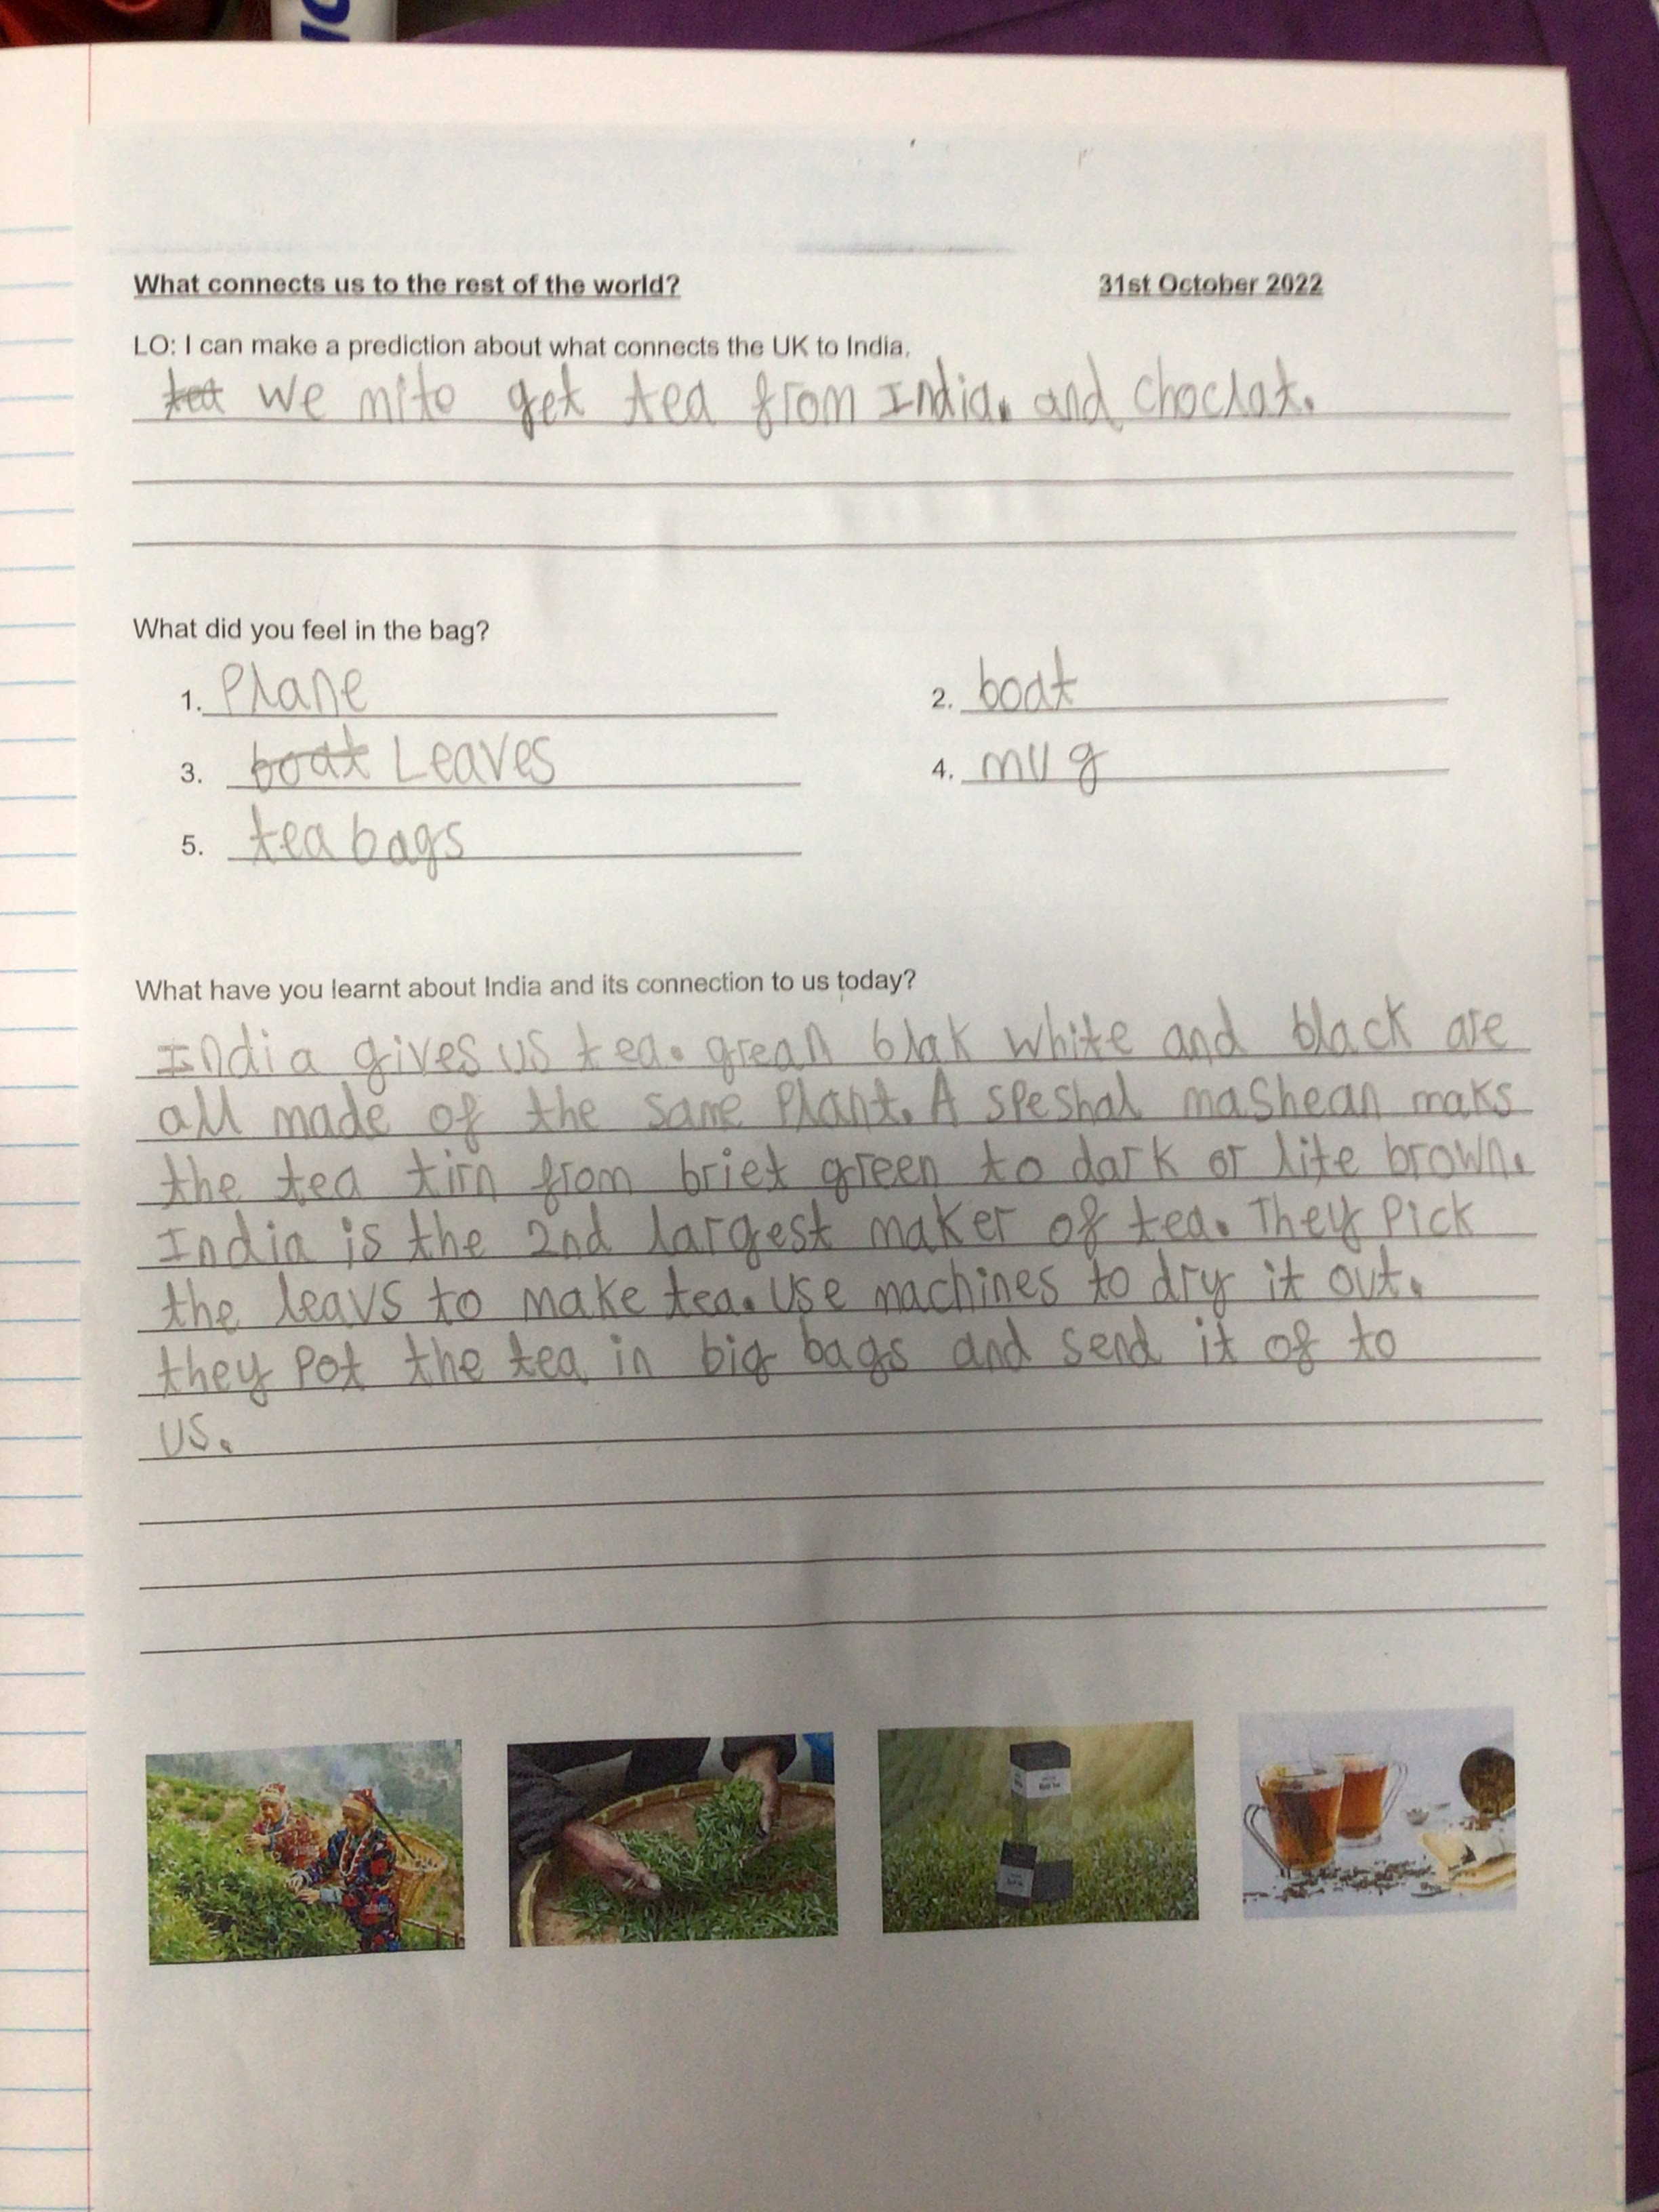 What connects us to the rest of the world? 31st October 2022
LO: I can make a prediction about what connects the UK to India.
tea we mito get tea from India. and choclat.
What did you feel in the bag?
1. Plane 2. boat
3. boat Leaves 4. mug
5. tea bags
What have you learnt about India and its connection to us today?
India gives us tea. grean blak white and black are
all made of the same Plant. A speshal mashean maks
the tea tirn from briet green to dark or lite brown.
India is the 2nd largest maker of tea. They Pick
the leavs to make tea. Use machines to dry it out.
they Pot the tea in big bags and send it of to
us.